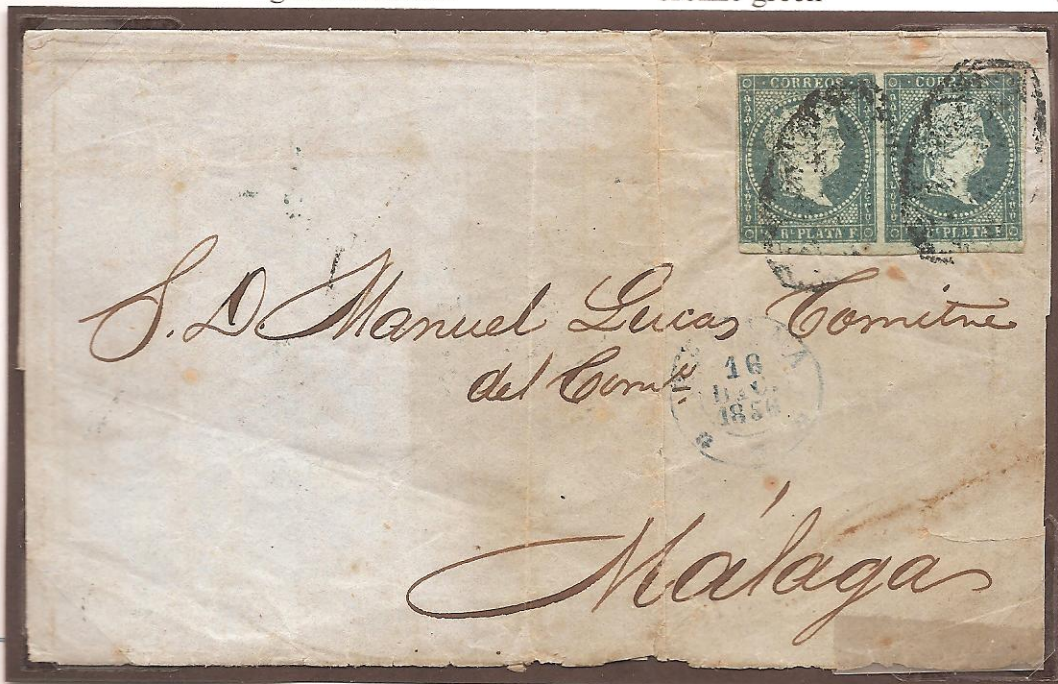 green
CORREOS CORREOS
Rl. PLATA F. Rl. PLATA F.
S. D. Manuel Lucas Comitre
del Com.º
16
DIC.
1856
Málaga